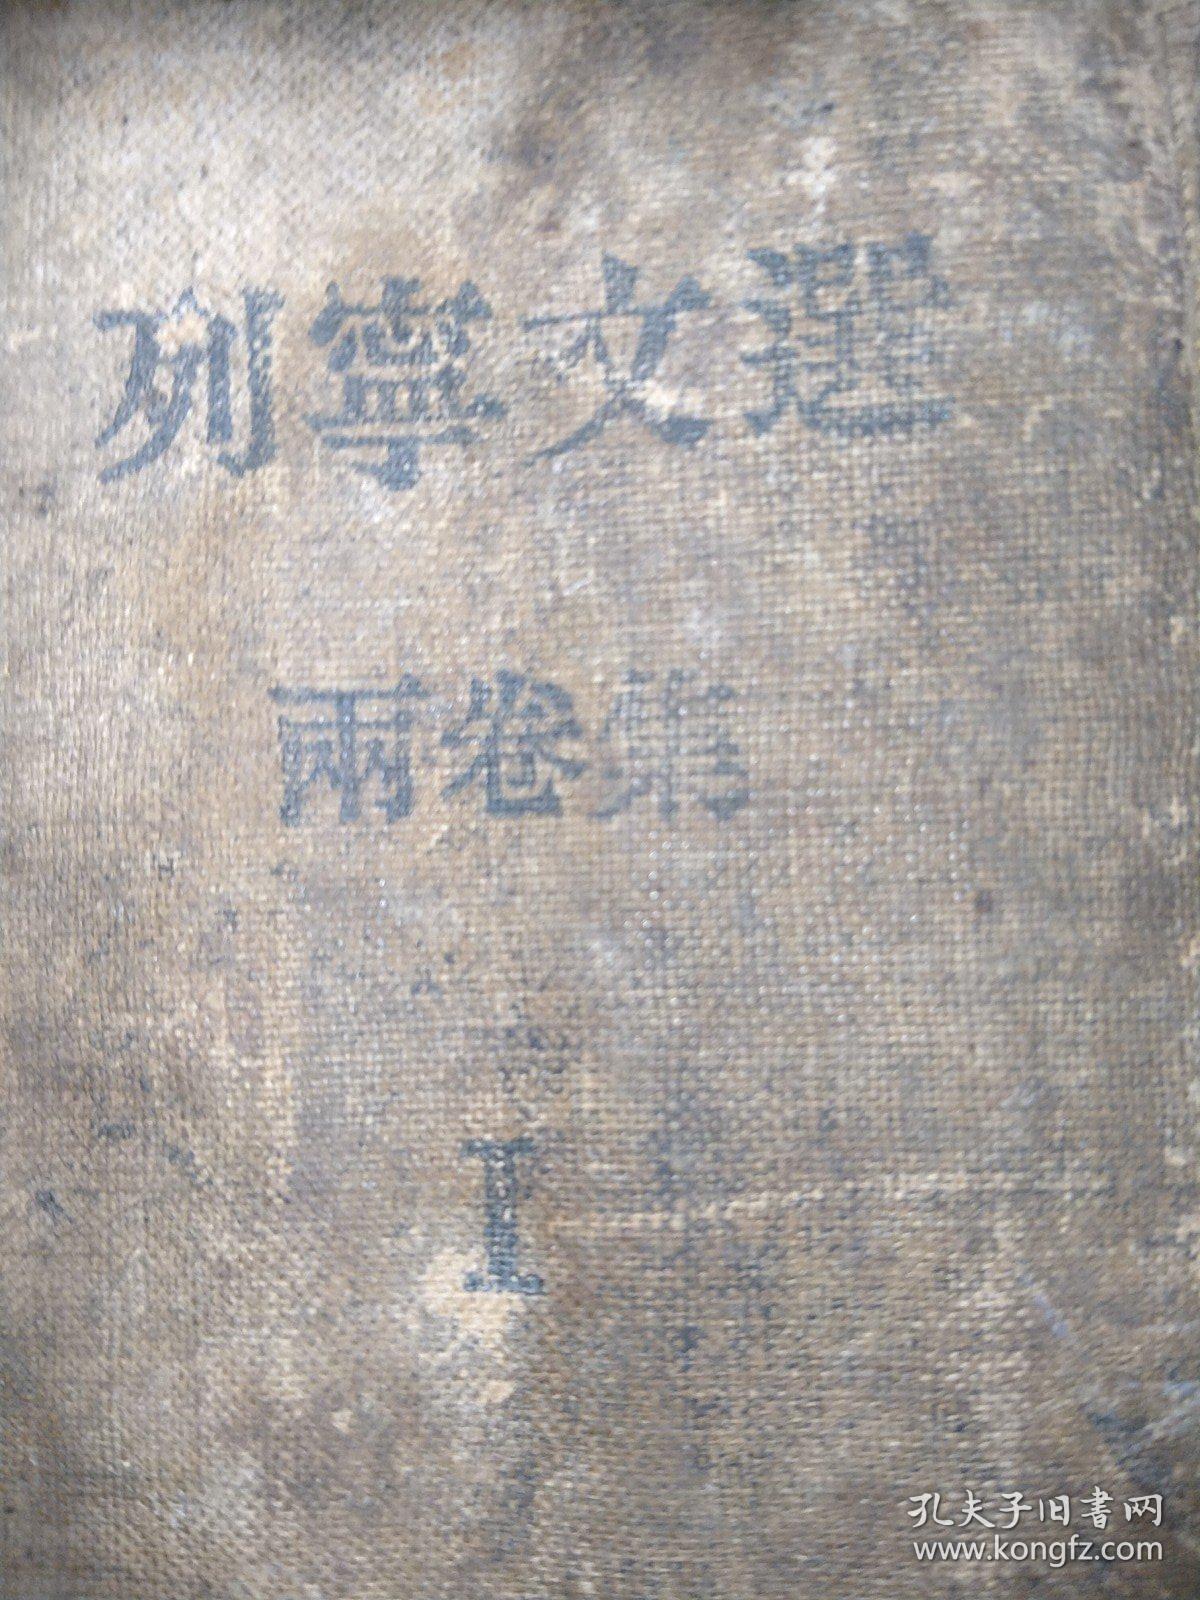 列寧文選
兩卷集
I
孔夫子旧書网
www.kongfz.com